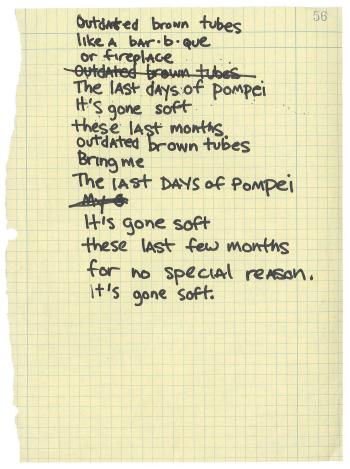 56
Outdated brown tubes
like a bar·b·que
or fireplace
outdated brown tubes
The last days of Pompei
It's gone soft
these last months
outdated brown tubes
Bring me
The last DAYS of Pompei
My
It's gone soft
these last few months
for no special reason.
it's gone soft.